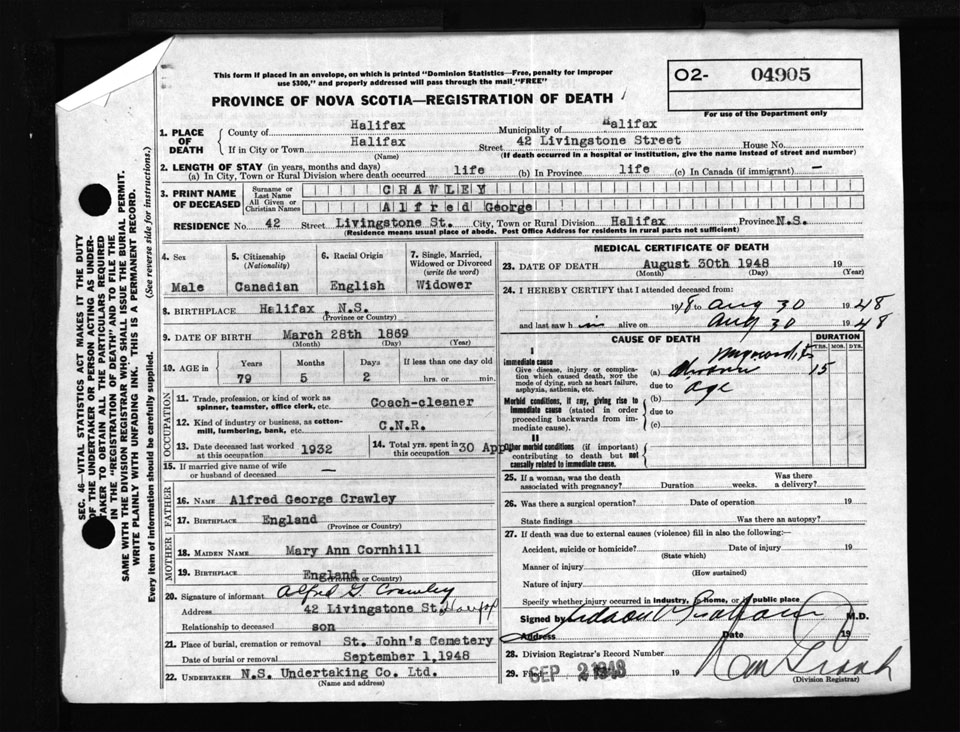 This form if placed in an envelope, on which is printed "Dominion Statistics—Free, penalty for improper
use $300," and properly addressed will pass through the mail "FREE"
PROVINCE OF NOVA SCOTIA—REGISTRATION OF DEATH
O2- 04905
For use of the Department only
1. PLACE OF DEATH
County of Halifax Municipality of Halifax
If in City or Town Halifax Street 42 Livingstone Street House No.
(Name) (If death occurred in a hospital or institution, give the name instead of street and number)
2. LENGTH OF STAY (in years, months and days)
(a) In City, Town or Rural Division where death occurred life (b) In Province life (c) In Canada (if immigrant) —
3. PRINT NAME OF DECEASED
Surname or Last Name CRAWLEY
All Given or Christian Names Alfred George
RESIDENCE No. 42 Street Livingstone St. City, Town or Rural Division Halifax Province N.S.
(Residence means usual place of abode. Post Office Address for residents in rural parts not sufficient)
4. Sex Male
5. Citizenship (Nationality) Canadian
6. Racial Origin English
7. Single, Married, Widowed or Divorced (write the word) Widower
8. BIRTHPLACE Halifax, N.S.
(Province or Country)
9. DATE OF BIRTH March 28th 1869
(Month) (Day) (Year)
10. AGE in Years Months Days If less than one day old
79 5 2 hrs. or min.
OCCUPATION
11. Trade, profession, or kind of work as spinner, teamster, office clerk, etc. Coach-cleaner
12. Kind of industry or business, as cotton-mill, lumbering, bank, etc. C.N.R.
13. Date deceased last worked at this occupation 1932
14. Total yrs. spent in this occupation 30 App
15. If married give name of wife or husband of deceased —
FATHER
16. NAME Alfred George Crawley
17. BIRTHPLACE England
(Province or Country)
MOTHER
18. MAIDEN NAME Mary Ann Cornhill
19. BIRTHPLACE England
(Province or Country)
20. Signature of informant Alfred G. Crawley
Address 42 Livingstone St. Halifax
Relationship to deceased son
21. Place of burial, cremation or removal St. John's Cemetery
Date of burial or removal September 1,1948
22. UNDERTAKER N.S. Undertaking Co. Ltd.
(Name and Address)
MEDICAL CERTIFICATE OF DEATH
23. DATE OF DEATH August 30th 1948 19
(Month) (Day) (Year)
24. I HEREBY CERTIFY that I attended deceased from:
to Aug 30 1948
and last saw h im alive on Aug 30 1948
CAUSE OF DEATH
DURATION
YRS. MOS. DYS.
I
Immediate cause
Give disease, injury or complication which caused death, NOT the mode of dying, such as heart failure, asphyxia, asthenia, etc.
(a) Chronic Myocarditis 15
due to
Morbid conditions, if any, giving rise to immediate cause (stated in order proceeding backwards from immediate cause).
(b) age
due to
(c)
II
Other morbid conditions (if important) contributing to death but not causally related to immediate cause.
25. If a woman, was the death associated with pregnancy? Duration weeks. Was there a delivery?
26. Was there a surgical operation? Date of operation 19
State findings Was there an autopsy?
27. If death was due to external causes (violence) fill in also the following:
Accident, suicide or homicide? Date of injury 19
(State which)
Manner of injury
(How sustained)
Nature of injury
Specify whether injury occurred in industry, in home, or in public place
Signed by M.D.
Address Date 19
28. Division Registrar's Record Number
29. Filed SEP 2 1948 19
(Division Registrar)
SEC. 46—VITAL STATISTICS ACT MAKES IT THE DUTY
OF THE UNDERTAKER OR PERSON ACTING AS UNDER-
TAKER TO OBTAIN ALL THE PARTICULARS REQUIRED
IN THE "REGISTRATION OF DEATH" AND TO FILE THE
SAME WITH THE DIVISION REGISTRAR WHO SHALL ISSUE THE BURIAL PERMIT.
WRITE PLAINLY WITH UNFADING INK. THIS IS A PERMANENT RECORD.
Every item of information should be carefully supplied. (See reverse side for instructions.)